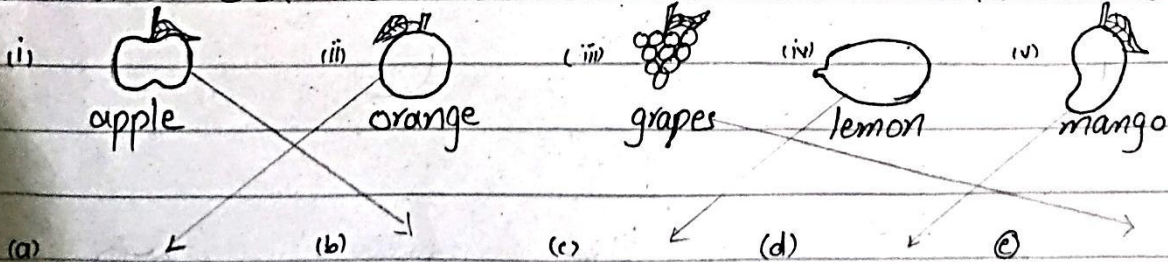 (i) (ii) (iii) (iv) (v)
apple orange grapes lemon mango
(a) (b) (c) (d) (e)